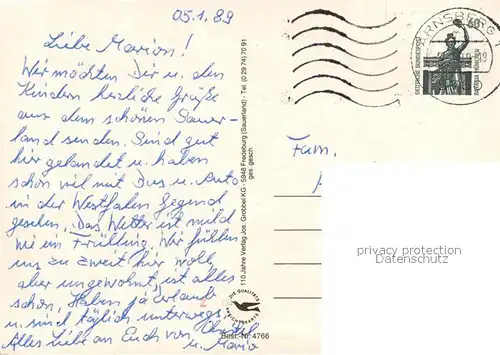 05.1.89
Liebe Marion!
Wir möchten Dir u. den
Kindern herzliche Grüße
aus dem schönen Sauer-
land senden. Sind gut
hier gelandet u. haben
schon viel mit Bus u. Auto
in der Westfalen Gegend
gesehen. Das Wetter ist mild
wie im Frühling. Wir fühlen
uns zu zweit hier wohl,
aber ungewohnt, ist alles
schön, Haben ja Urlaub
u. sind täglich unterwegs.
Alles Liebe an Euch von
u. Mario
110 Jahre Verlag Jos. Grobbel KG · 5948 Fredeburg (Sauerland) · Tel. (0 29 74) 70 91
ges. gesch.
DIE QUALITÄTS
ANSICHTSKARTE
Best.-Nr. 4766
ARNSBERG 1
60
DEUTSCHE BUNDESPOST
BAVARIA MÜNCHEN
Fam.
privacy protection
Datenschutz